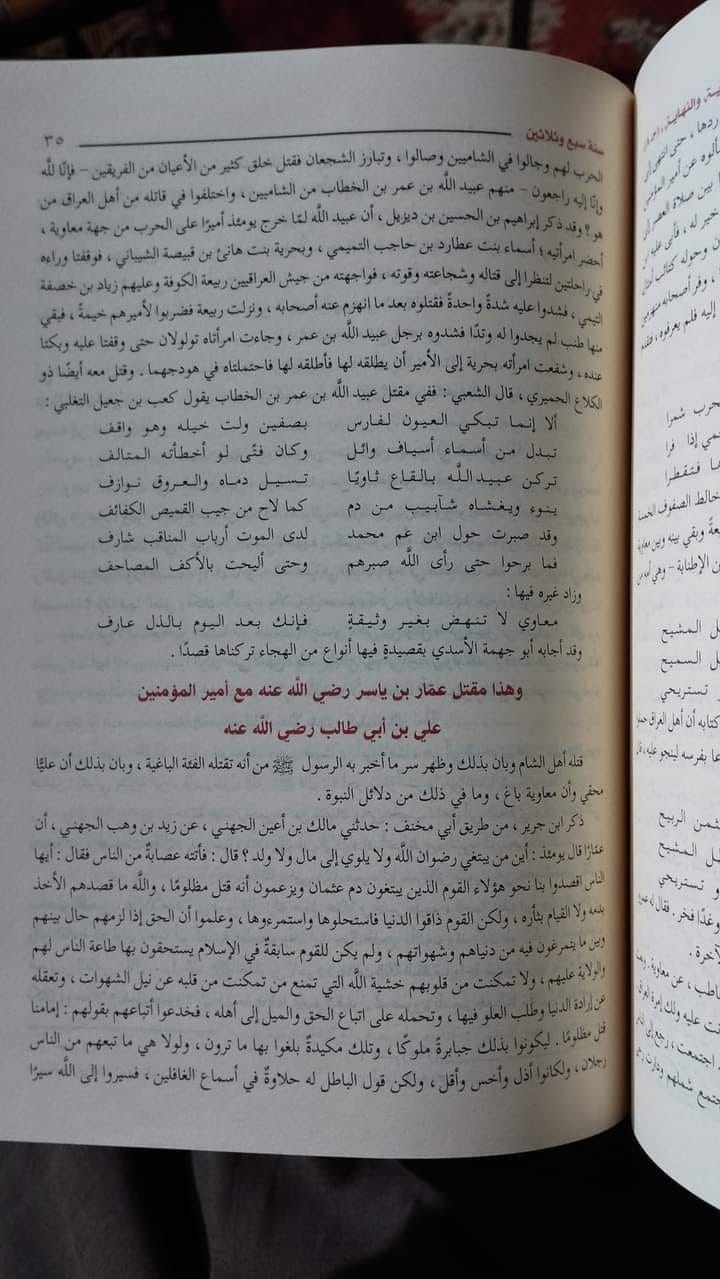 سنة سبع وثلاثين ٣٥
الحرب لهم وجالوا في الشاميين وصالوا ، وتبارز الشجعان فقتل خلق كثير من الأعيان من الفريقين – فإنّا للّه
وإنّا إليه راجعون – منهم عبيد اللّه بن عمر بن الخطاب من الشاميين ، واختلفوا في قاتله من أهل العراق من
هو ؟ وقد ذكر إبراهيم بن الحسين بن ديزيل ، أن عبيد اللّه لمّا خرج يومئذ أميرًا على الحرب من جهة معاوية ،
أحضر امرأتيه ؛ أسماء بنت عطارد بن حاجب التميمي ، وبحرية بنت هانئ بن قبيصة الشيباني ، فوقفتا وراءه
في راحلتين لتنظرا إلى قتاله وشجاعته وقوته ، فواجهته من جيش العراقيين ربيعة الكوفة وعليهم زياد بن خصفة
التيمي ، فشدوا عليه شدةً واحدةً فقتلوه بعد ما انهزم عنه أصحابه ، ونزلت ربيعة فضربوا لأميرهم خيمةً ، فبقي
منها طنب لم يجدوا له وتدًا فشدوه برجل عبيد اللّه بن عمر ، وجاءت امرأتاه تولولان حتى وقفتا عليه وبكتا
عنده ، وشفعت امرأته بحرية إلى الأمير أن يطلقه لها فأطلقه لها فاحتملتاه في هودجهما . وقتل معه أيضًا ذو
الكلاع الحميري ، قال الشعبي : ففي مقتل عبيد اللّه بن عمر بن الخطاب يقول كعب بن جعيل التغلبي :
ألا إنما تبكي العيون لفارس بصفين ولت خيله وهو واقف
تبدل من أسماء أسياف وائل وكان فتًى لو أخطأته المتالف
تركن عبيد اللّه بالقاع ثاويًا تسيل دماه والعروق نوازف
ينوء ويغشاه شآبيب من دم كما لاح من جيب القميص الكفائف
وقد صبرت حول ابن عم محمد لدى الموت أرباب المناقب شارف
فما برحوا حتى رأى اللّه صبرهم وحتى أليحت بالأكف المصاحف
وزاد غيره فيها :
معاوي لا تنهض بغير وثيقةٍ فإنك بعد اليوم بالذل عارف
وقد أجابه أبو جهمة الأسدي بقصيدةٍ فيها أنواع من الهجاء تركناها قصدًا .
وهذا مقتل عمّار بن ياسر رضي اللّه عنه مع أمير المؤمنين
علي بن أبي طالب رضي اللّه عنه
قتله أهل الشام وبان بذلك وظهر سر ما أخبر به الرسول ﷺ من أنه تقتله الفئة الباغية ، وبان بذلك أن عليًّا
محقي وأن معاوية باغ ، وما في ذلك من دلائل النبوة .
ذكر ابن جرير ، من طريق أبي مخنف : حدثني مالك بن أعين الجهني ، عن زيد بن وهب الجهني ، أن
عمّارًا قال يومئذ : أين من يبتغي رضوان اللّه ولا يلوي إلى مال ولا ولد ؟ قال : فأتته عصابةٌ من الناس فقال : أيها
الناس اقصدوا بنا نحو هؤلاء القوم الذين يبتغون دم عثمان ويزعمون أنه قتل مظلومًا ، واللّه ما قصدهم الأخذ
بدمه ولا القيام بثأره ، ولكن القوم ذاقوا الدنيا فاستحلوها واستمرءوها ، وعلموا أن الحق إذا لزمهم حال بينهم
وبين ما يتمرغون فيه من دنياهم وشهواتهم ، ولم يكن للقوم سابقةٌ في الإسلام يستحقون بها طاعة الناس لهم
والولاية عليهم ، ولا تمكنت من قلوبهم خشية اللّه التي تمنع من تمكنت من قلبه عن نيل الشهوات ، وتعقله
عن إرادة الدنيا وطلب العلو فيها ، وتحمله على اتباع الحق والميل إلى أهله ، فخدعوا أتباعهم بقولهم : إمامنا
قتل مظلومًا . ليكونوا بذلك جبابرةً ملوكًا ، وتلك مكيدةٌ بلغوا بها ما ترون ، ولولا هي ما تبعهم من الناس
رجلان ، ولكانوا أذل وأخس وأقل ، ولكن قول الباطل له حلاوةٌ في أسماع الغافلين ، فسيروا إلى اللّه سيرًا